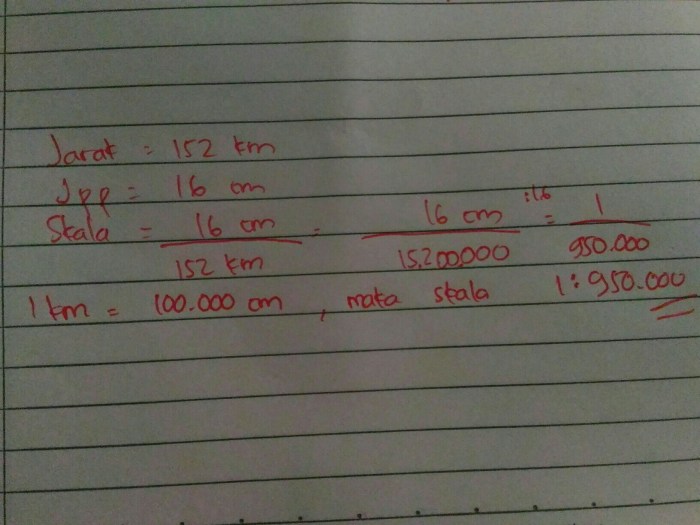 Jarak = 152 km
Jpp = 16 cm
Skala = 16 cm / 152 km = 16 cm / 15.200.000 :16 = 1 / 950.000
1 km = 100.000 cm, maka skala 1 : 950.000